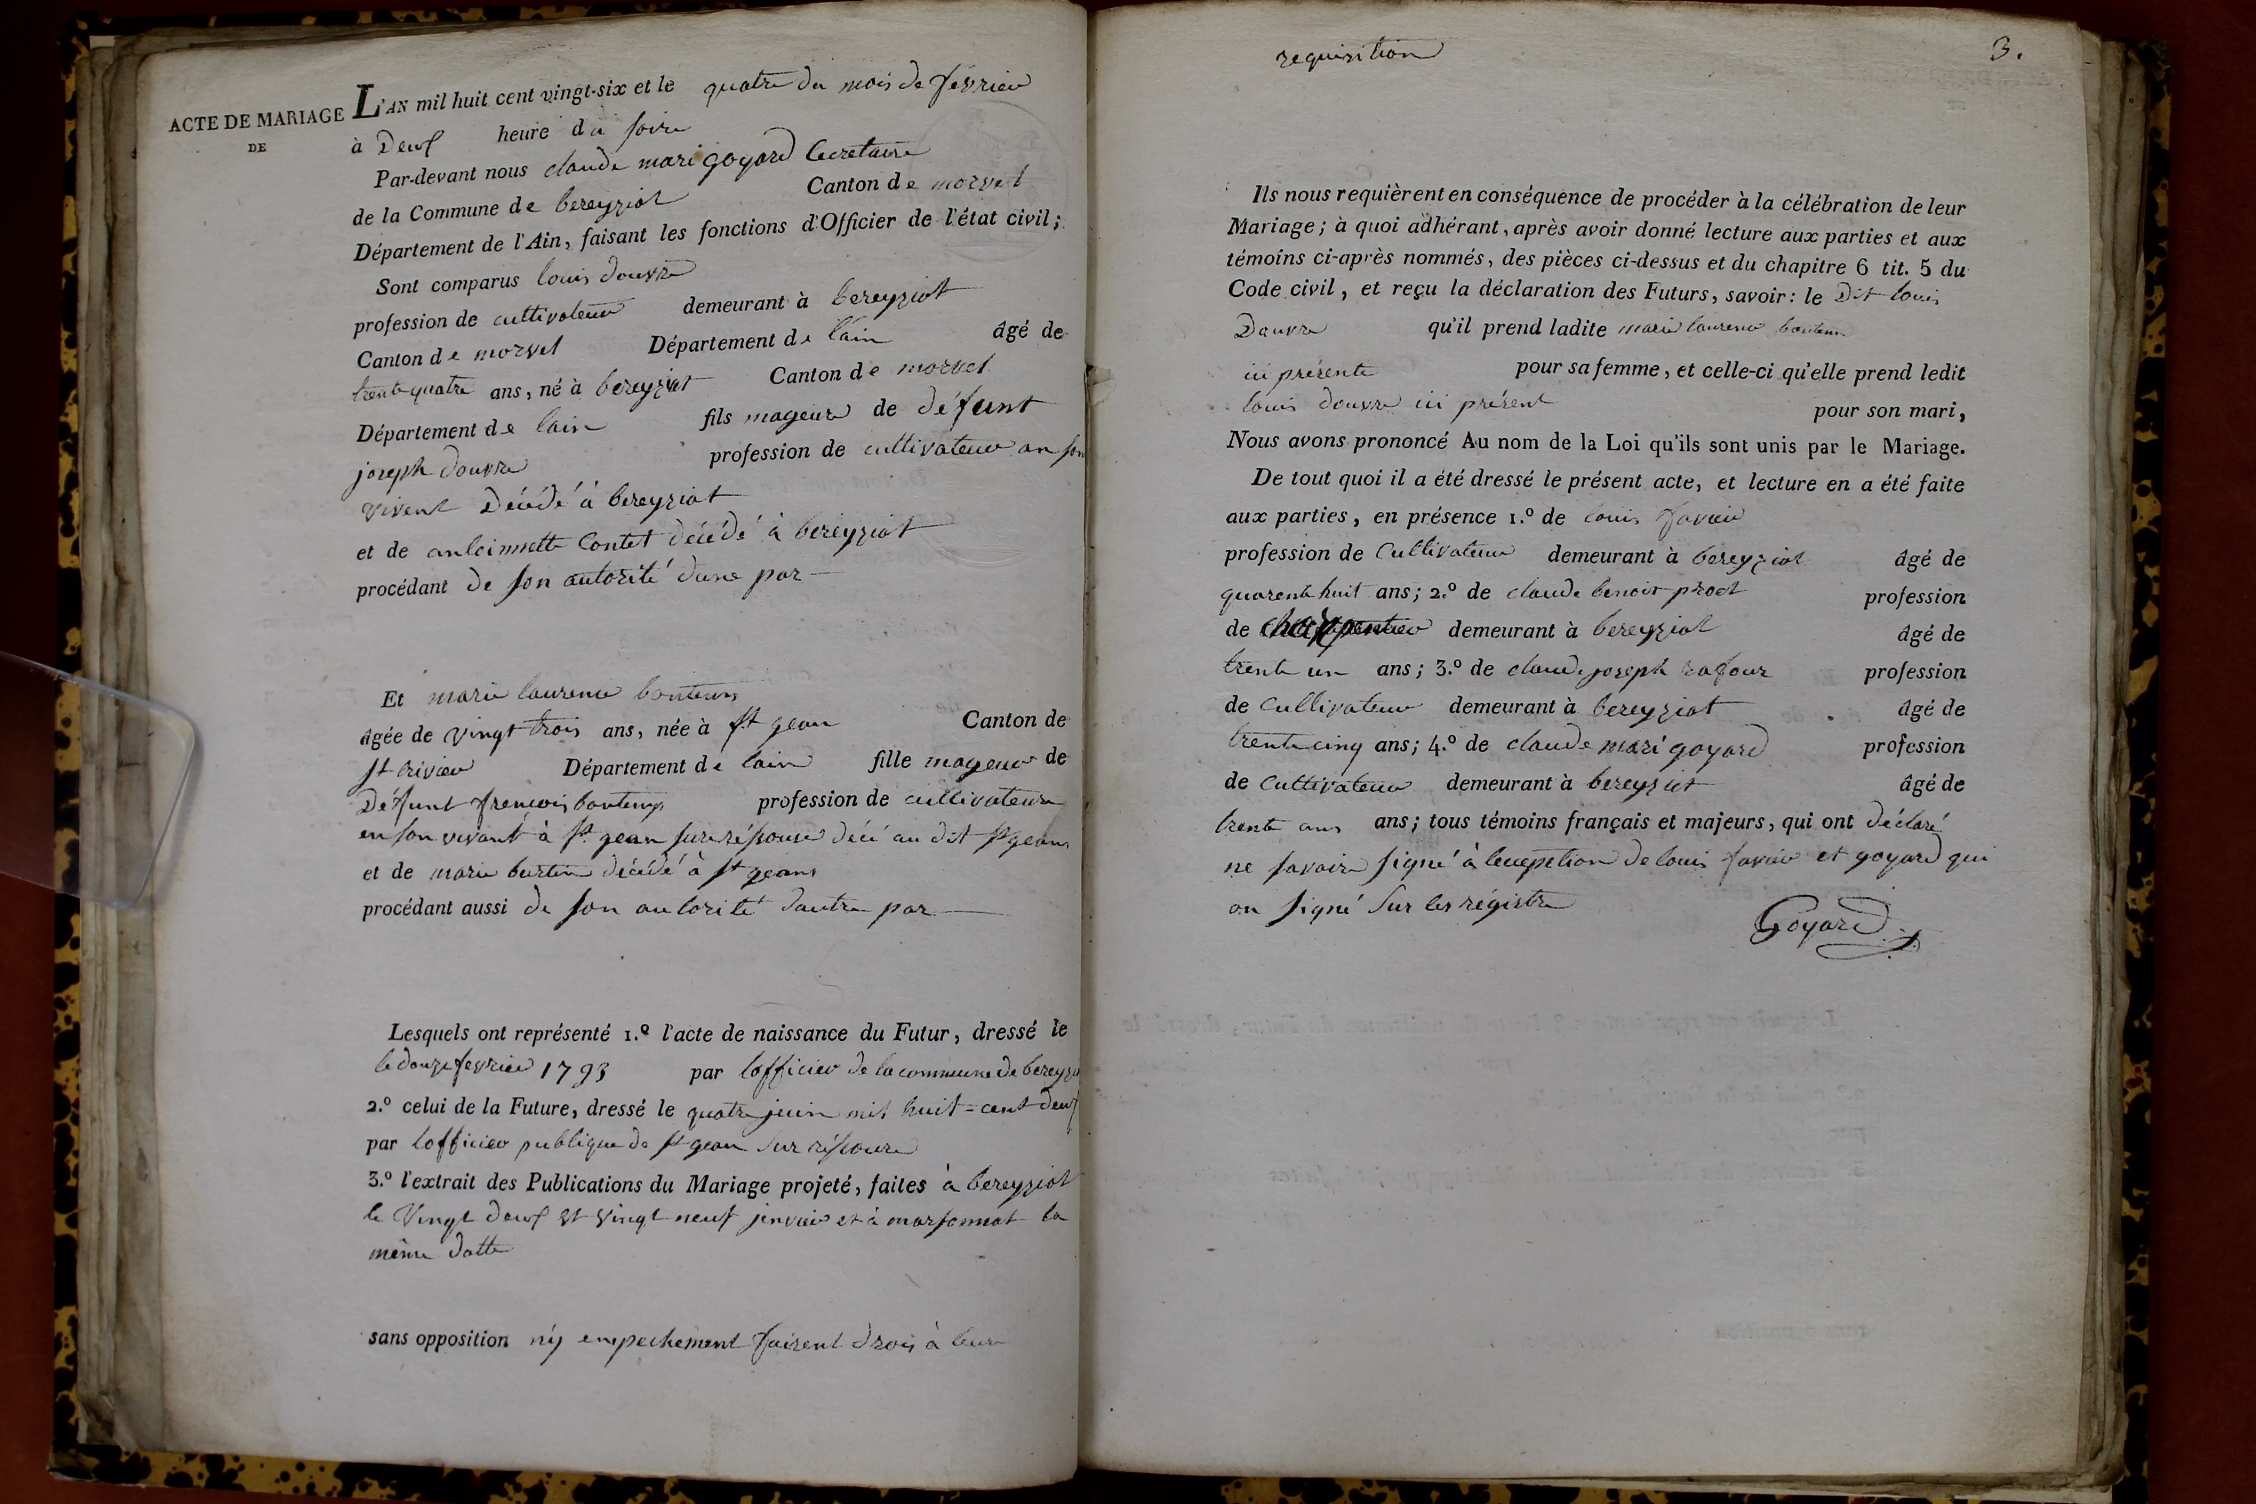 ACTE DE MARIAGE
DE
L'AN mil huit cent vingt-six et le quatre du mois de fevrier
à Deux heure du soire
Par-devant nous claude mari goyard Secretaire
de la Commune de bereyziat Canton de morvel
Département de l'Ain, faisant les fonctions d'Officier de l'état civil;
Sont comparus louis douvre
profession de cultivateur demeurant à bereyziat
Canton de morvel Département de lain âgé de
trente quatre ans, né à bereyziat Canton de morvel
Département de lain fils mageur de défunt
joseph douvre profession de cultivateur an son
vivent Décédé à bereyziat
et de antoinnette Contet décédé à bereyziat
procédant de son autorité dune par
Et marie laurence bontems
âgée de vingt trois ans, née à st gean Canton de
st trivier Département de lain fille mageur de
Défunt francois bontemps profession de cultivateur
en son vivant à st gean sure résouse décé au dit st geans
et de marie burtin décédé à st geans
procédant aussi de son autorité dautre par
Lesquels ont représenté 1.º l'acte de naissance du Futur, dressé le
le douze fevrier 1793 par lofficier de la commune de bereyziat
2.º celui de la Future, dressé le quatre juin mil huit=cent deux
par lofficier publique de st gean sur résouse
3.º l'extrait des Publications du Mariage projeté, faites à bereyziat
le Vingt deux et vingt neuf janvier et à marsonnat la
même datte
sans opposition n'y empechement faisent drois à leur
requisition
3.
Ils nous requièrent en conséquence de procéder à la célébration de leur
Mariage; à quoi adhérant, après avoir donné lecture aux parties et aux
témoins ci-après nommés, des pièces ci-dessus et du chapitre 6 tit. 5 du
Code civil, et reçu la déclaration des Futurs, savoir: le Dit louis
Douvre qu'il prend ladite marie laurence bontems
ici présente pour sa femme, et celle-ci qu'elle prend ledit
louis douvre ici présent pour son mari,
Nous avons prononcé Au nom de la Loi qu'ils sont unis par le Mariage.
De tout quoi il a été dressé le présent acte, et lecture en a été faite
aux parties, en présence 1.º de louis favier
profession de Cultivateur demeurant à bereyziat âgé de
quarente huit ans; 2.º de claude benoit prost profession
de charpentier demeurant à bereyziat âgé de
trente un ans; 3.º de claude joseph rafour profession
de Cultivateur demeurant à bereyziat âgé de
trente cinq ans; 4.º de claude mari goyard profession
de Cultivateur demeurant à bereyziat âgé de
trente ans ans; tous témoins français et majeurs, qui ont déclaré
ne savoire signé à lexeption de louis favier et goyard qui
on signé sur les régistre
Goyard